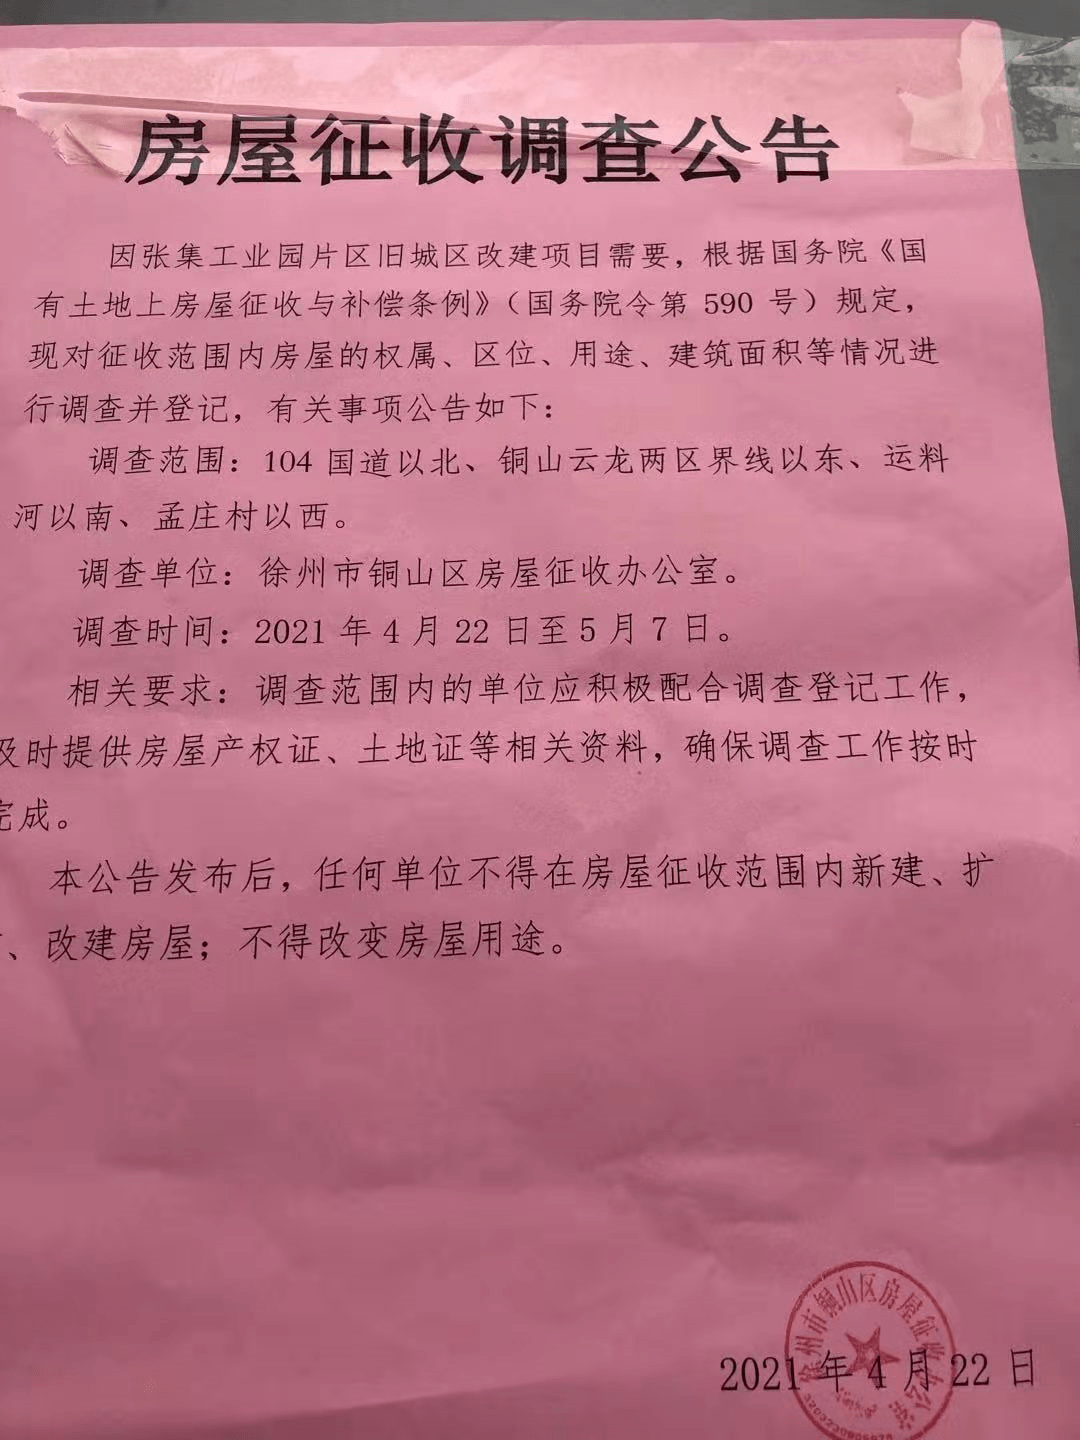 房屋征收调查公告
因张集工业园片区旧城区改建项目需要，根据国务院《国
有土地上房屋征收与补偿条例》（国务院令第 590 号）规定，
现对征收范围内房屋的权属、区位、用途、建筑面积等情况进
行调查并登记，有关事项公告如下：
调查范围：104 国道以北、铜山云龙两区界线以东、运料
河以南、孟庄村以西。
调查单位：徐州市铜山区房屋征收办公室。
调查时间：2021 年 4 月 22 日至 5 月 7 日。
相关要求：调查范围内的单位应积极配合调查登记工作，
及时提供房屋产权证、土地证等相关资料，确保调查工作按时
完成。
本公告发布后，任何单位不得在房屋征收范围内新建、扩
、改建房屋；不得改变房屋用途。
徐州市铜山区房屋征收办公室
2021 年 4 月 22 日